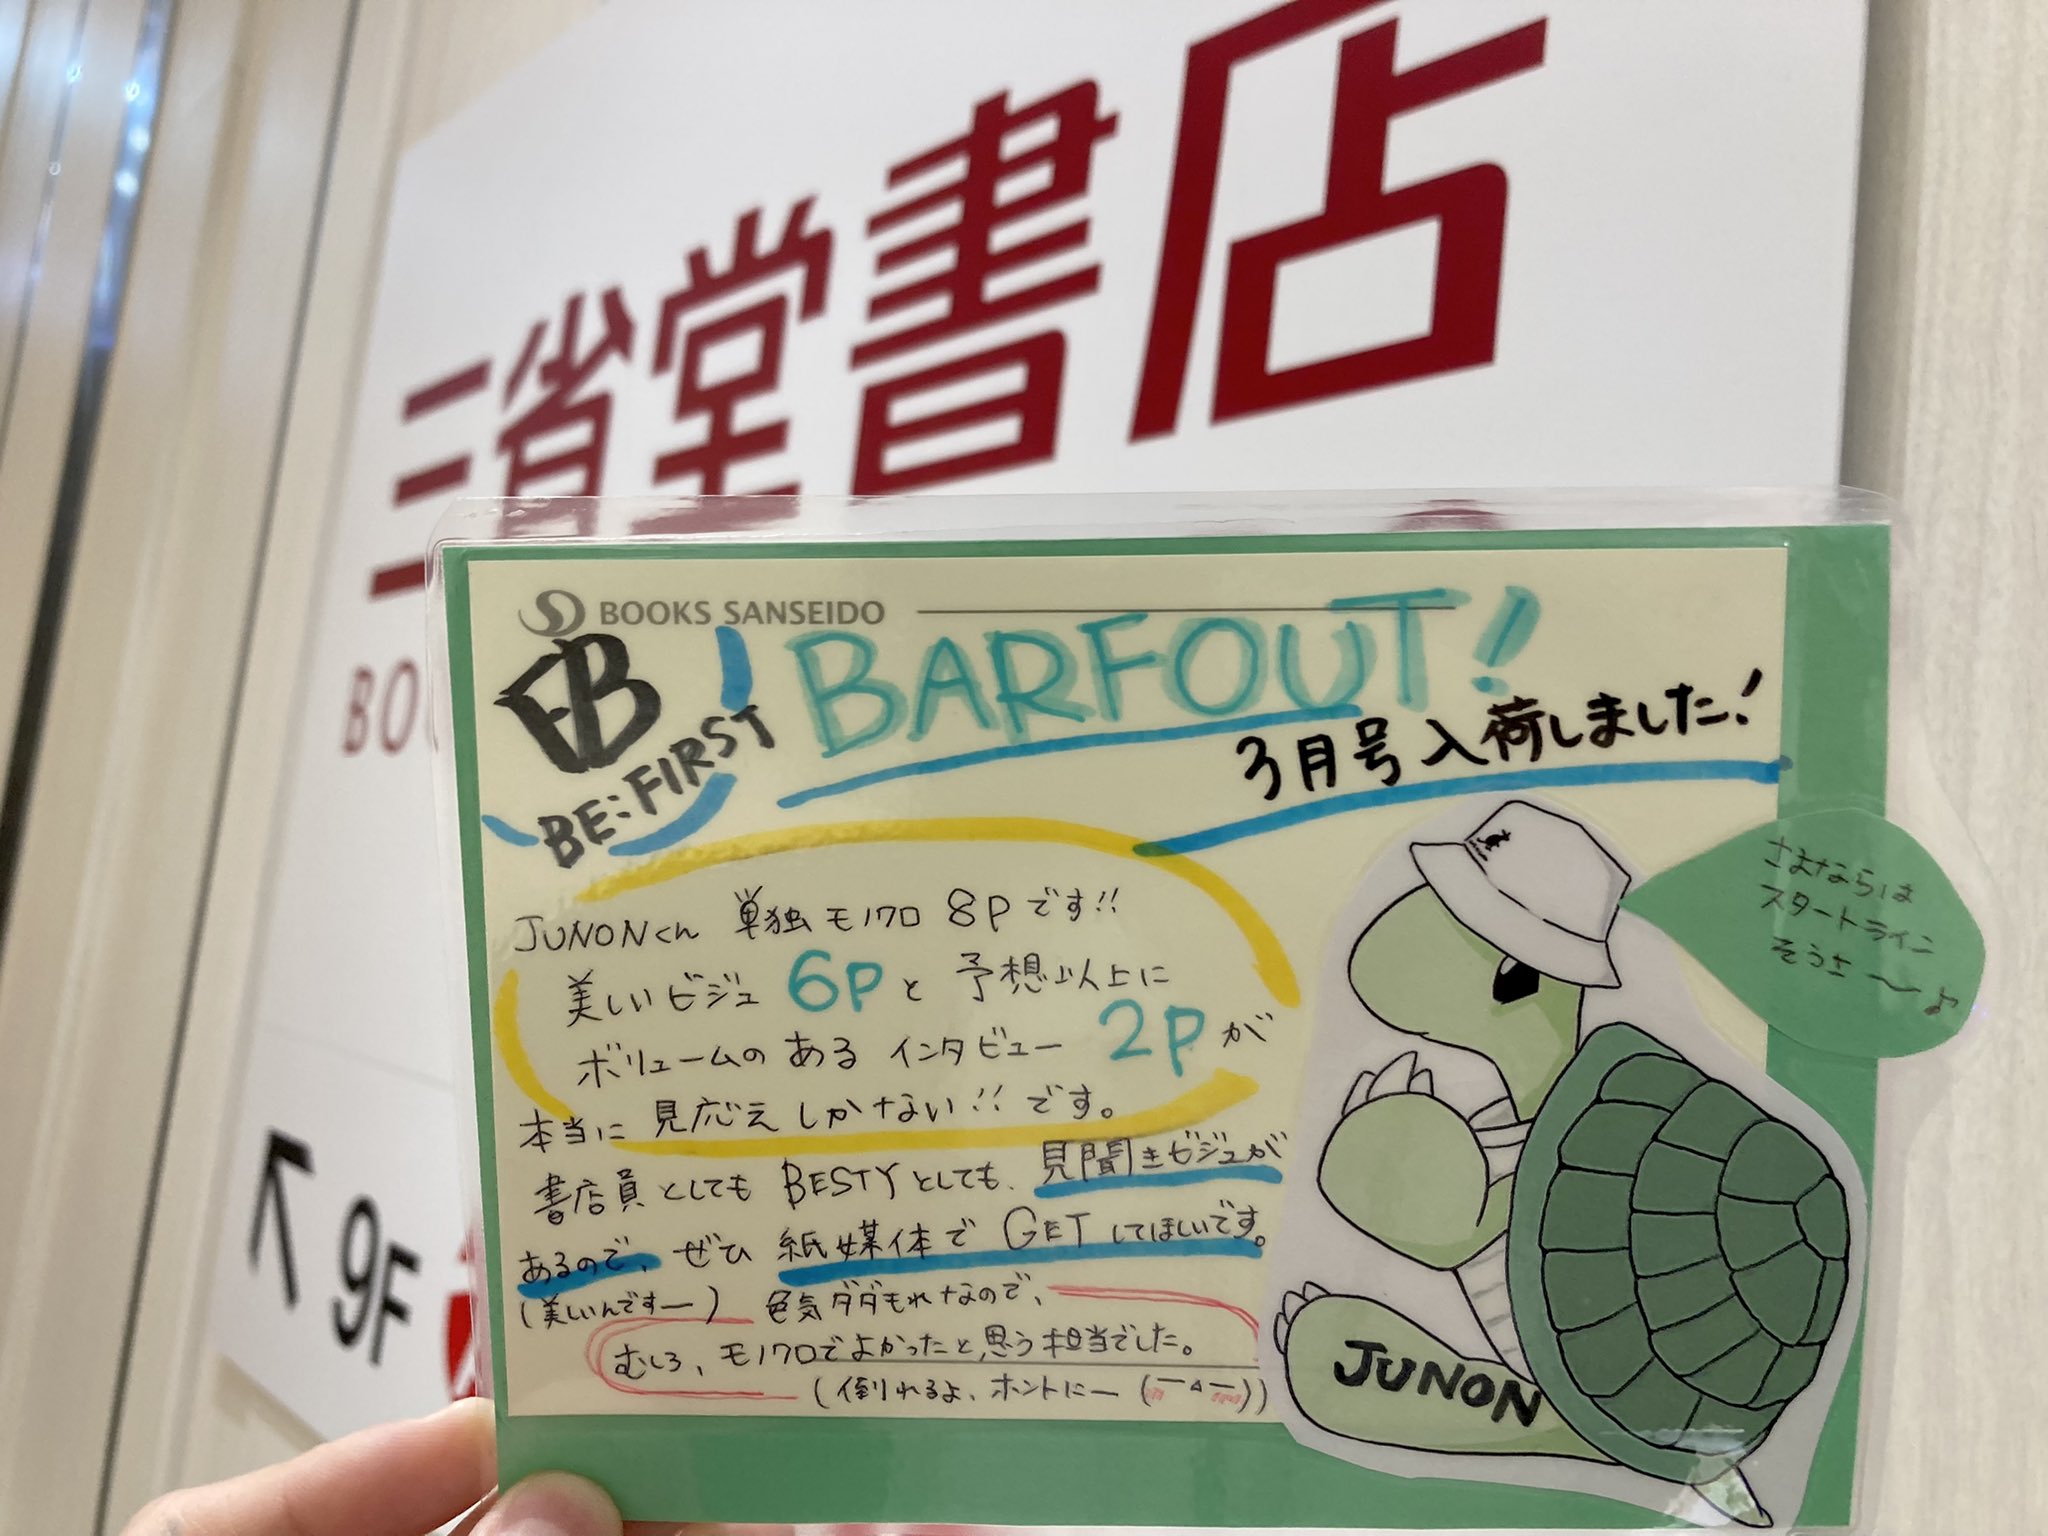 三省堂書店
BO
↖ 9F
BOOKS SANSEIDO
BE:FIRST
BARFOUT!
3月号入荷しました!
JUNONくん 単独モノクロ 8Pです!!
美しいビジュ 6Pと 予想以上に
ボリュームのある インタビュー 2Pが
本当に 見応えしかない!!です。
書店員としても BESTYとしても、見開きビジュが
あるので、ぜひ 紙媒体で GETしてほしいです。
(美しいんですー) 色気ダダもれなので、
むしろ、モノクロでよかったと思う担当でした。
(倒れるよ、ホントにー
さよならは
スタートライン
そうさ〜♪
JUNON